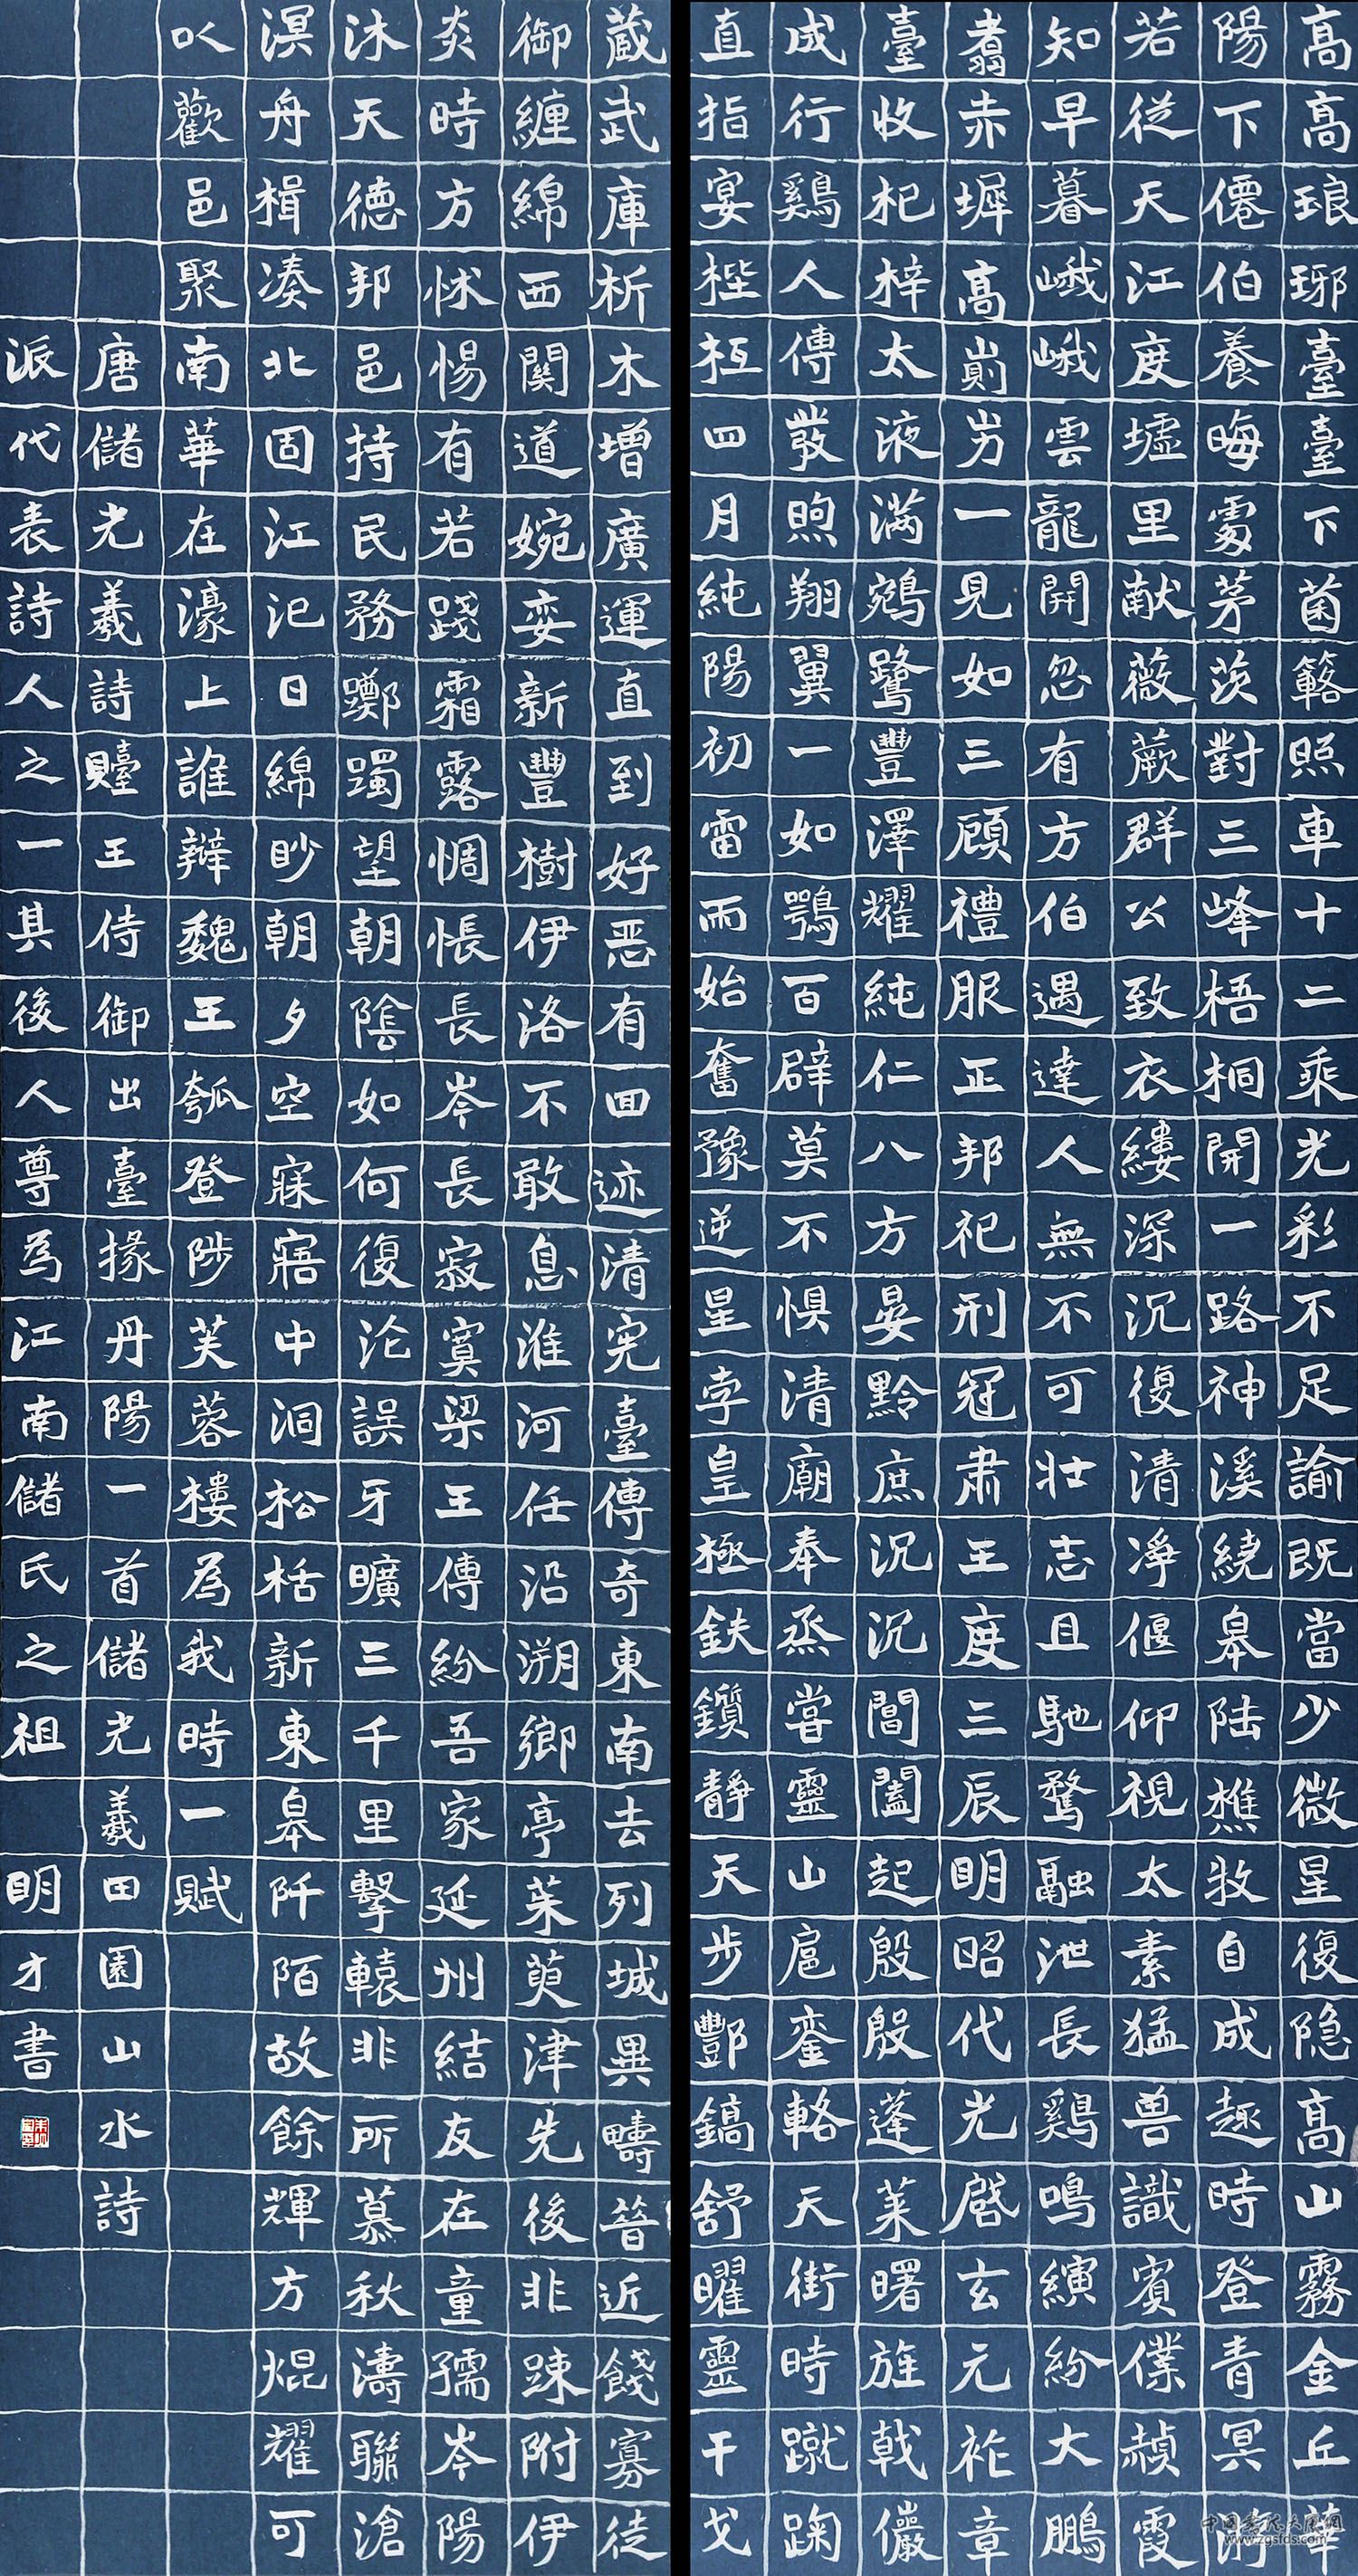 高高琅琊臺臺下菌簵照車十二乘光彩不足諭既當少微星復隐高山霧金丘華
陽下僊伯養晦處茅茨對三峰梧桐開一路神溪繞皋陆樵牧自成趣時登青冥游
若從天江度墟里献薇蕨群公致衣縷深沉復清凈偃仰視太素猛兽識賓僕赬霞
知早暮峨峨雲龍開忽有方伯遇達人無不可壮志且馳騖融泄長鷄鳴繽紛大鵬
翥赤墀高崱屴一見如三顧禮服正邦祀刑冠肃王度三辰明昭代光啓玄元祚章
臺收杞梓太液满鵷鷺豐澤耀純仁八方晏黔庶沉沉閶闔起殷殷蓬莱曙旌戟儼
成行鷄人傳發煦翔翼一如鶚百辟莫不惧清廟奉烝嘗靈山扈鑾輅天街時蹴踘
直指宴梐枑四月純陽初雷雨始奮豫逆星孛皇極鈇鑕靜天步酆鎬舒曜靈干戈
蔵武庫析木增廣運直到好恶有回迹清宪臺傳奇東南去列城異疇晉近餞寡徒
御纏綿西關道婉娈新豐樹伊洛不敢息淮河任沿溯鄉亭茱萸津先後非疎附伊
炎時方怵惕有若踐霜露惆悵長岑長寂寞梁王傳紛吾家延州結友在童孺岑陽
沐天德邦邑持民務躑躅望朝陰如何復沦誤牙曠三千里擊轅非所慕秋濤聯滄
溟舟楫凑北固江汜日綿眇朝夕空寐寤中洞松栝新東皋阡陌故餘輝方焜耀可
以歡邑聚南華在濠上誰辩魏王瓠登陟芙蓉樓為我時一赋
唐儲光羲詩貽王侍御出臺掾丹陽一首儲光羲田園山水詩
派代表詩人之一其後人尊為江南儲氏之祖 明才書
www.zgsfds.com